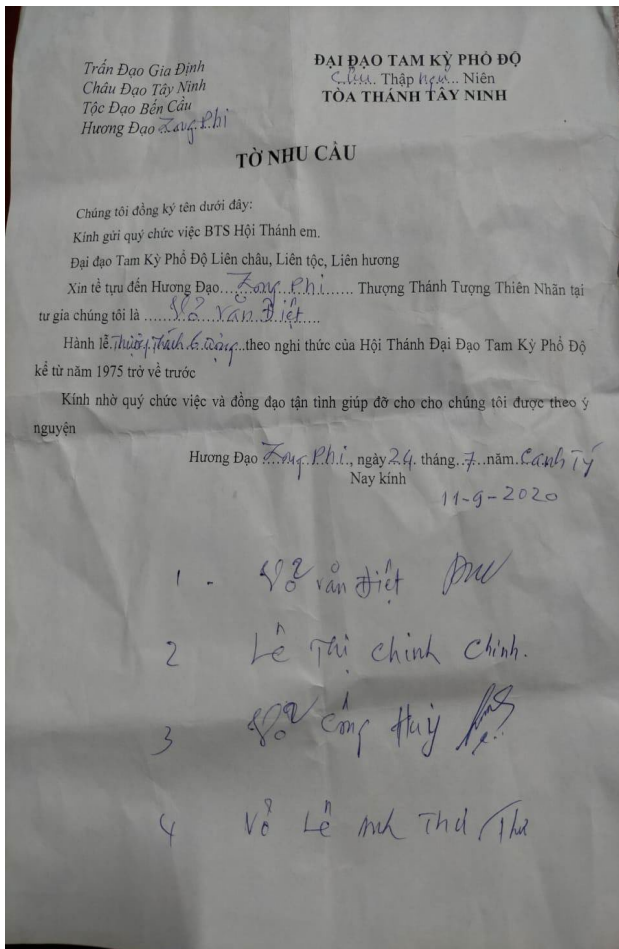 Trấn Đạo Gia Định
Châu Đạo Tây Ninh
Tộc Đạo Bến Cầu
Hương Đạo Long Phi
ĐẠI ĐẠO TAM KỲ PHỔ ĐỘ
Cửu Thập Ngũ... Niên
TÒA THÁNH TÂY NINH
TỜ NHU CẦU
Chúng tôi đồng ký tên dưới đây:
Kính gửi quý chức việc BTS Hội Thánh em.
Đại đạo Tam Kỳ Phổ Độ Liên châu, Liên tộc, Liên hương
Xin tề tựu đến Hương Đạo....Long Phi...... Thượng Thánh Tượng Thiên Nhãn tại
tư gia chúng tôi là ......Võ Văn Điết....
Hành lễ.Thượng Thánh Tượng..theo nghi thức của Hội Thánh Đại Đạo Tam Kỳ Phổ Độ
kể từ năm 1975 trở về trước
Kính nhờ quý chức việc và đồng đạo tận tình giúp đỡ cho cho chúng tôi được theo ý
nguyện
Hương Đạo Long Phi., ngày 24. tháng..7..năm.Canh Tý
Nay kính
11-9-2020
1 - Võ Văn Điết
2 Lê Thị Chinh Chinh.
3 Võ Công Huy
4 Võ Lê Anh Thư Thư